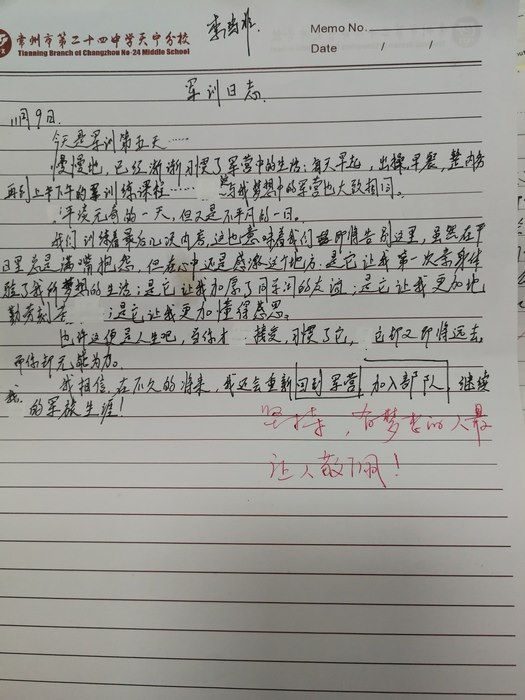 常州市第二十四中学天宁分校
Tianning Branch of Changzhou No·24 Middle School
Memo No.
Date / /
军训日志.
11月9日.
今天是军训第五天……
慢慢地，已经渐渐习惯了军营中的生活：每天早起，出操早餐，整内务
再到上午下午的军训练课程…… 与我梦想中的军营也大致相同。
平淡无奇的一天，但又是不平凡的一日。
我们训练着最后几次内容，这也意味着我们即将告别这里，虽然在平
日里总是满嘴抱怨，但在心中还是感激这个地方：是它让我第一次亲身体
验了我所梦想的生活；是它让我加厚了同学间的友谊；是它让我更加地
勤劳刻苦 ；是它让我更加懂得感恩。
也许这便是人生吧，当你才 接受，习惯了它， 它却又即将远去，
而你却无能为力。
我相信，在不久的将来，我还会重新回到军营 加入部队 继续
我 的军旅生涯！
坚持，有梦想的人最
让人敬佩！